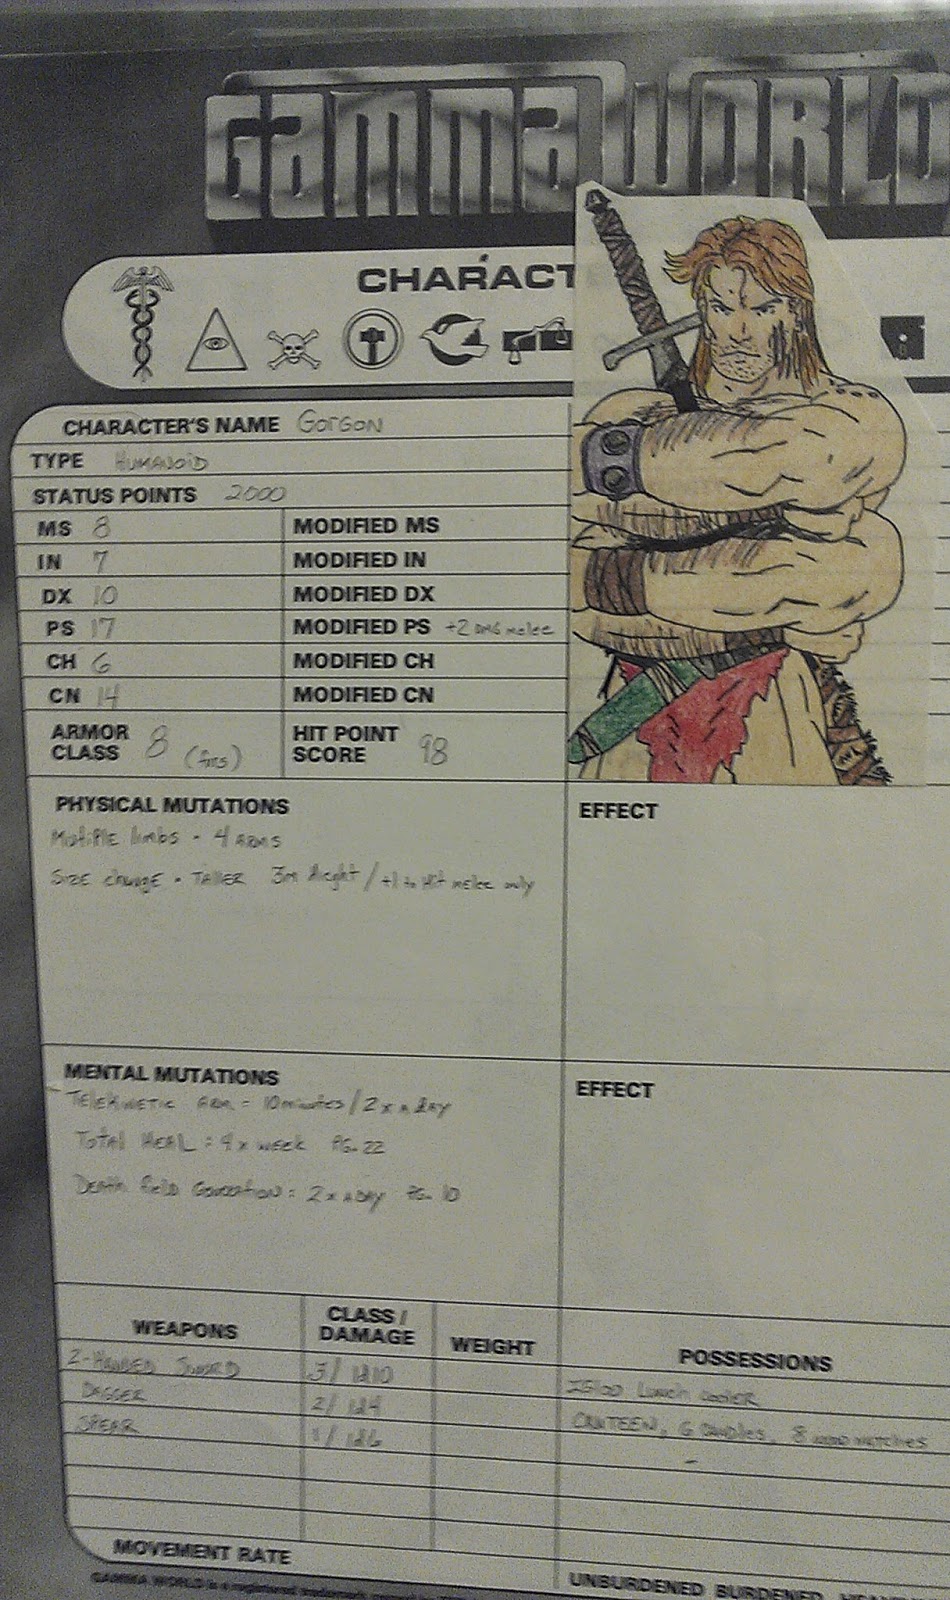 GAMMA WORLD
CHARACT
CHARACTER'S NAME Gorgon
TYPE HUMANOID
STATUS POINTS 2000
MS 8 MODIFIED MS
IN 7 MODIFIED IN
DX 10 MODIFIED DX
PS 17 MODIFIED PS +2 DMG melee
CH 6 MODIFIED CH
CN 14 MODIFIED CN
ARMOR CLASS 8 (furs) HIT POINT SCORE 98
PHYSICAL MUTATIONS EFFECT
Multiple limbs - 4 ARMS
Size change - TALLER 3m Height / +1 to Hit melee only
MENTAL MUTATIONS EFFECT
TELEKINETIC ARM = 10 minutes / 2 x a day
Total HEAL = 4 x week PG. 22
Death field Generation = 2 x A DAY PG. 10
WEAPONS CLASS / DAMAGE WEIGHT POSSESSIONS
2-HANDED SWORD 3/ 1d10 IGloo Lunch cooler
DAGGER 2/ 1d4 CANTEEN, 6 CANDLES, 8 wood matches
SPEAR 1/ 1d6
MOVEMENT RATE
UNBURDENED BURDENED
GAMMA WORLD is a registered trademark